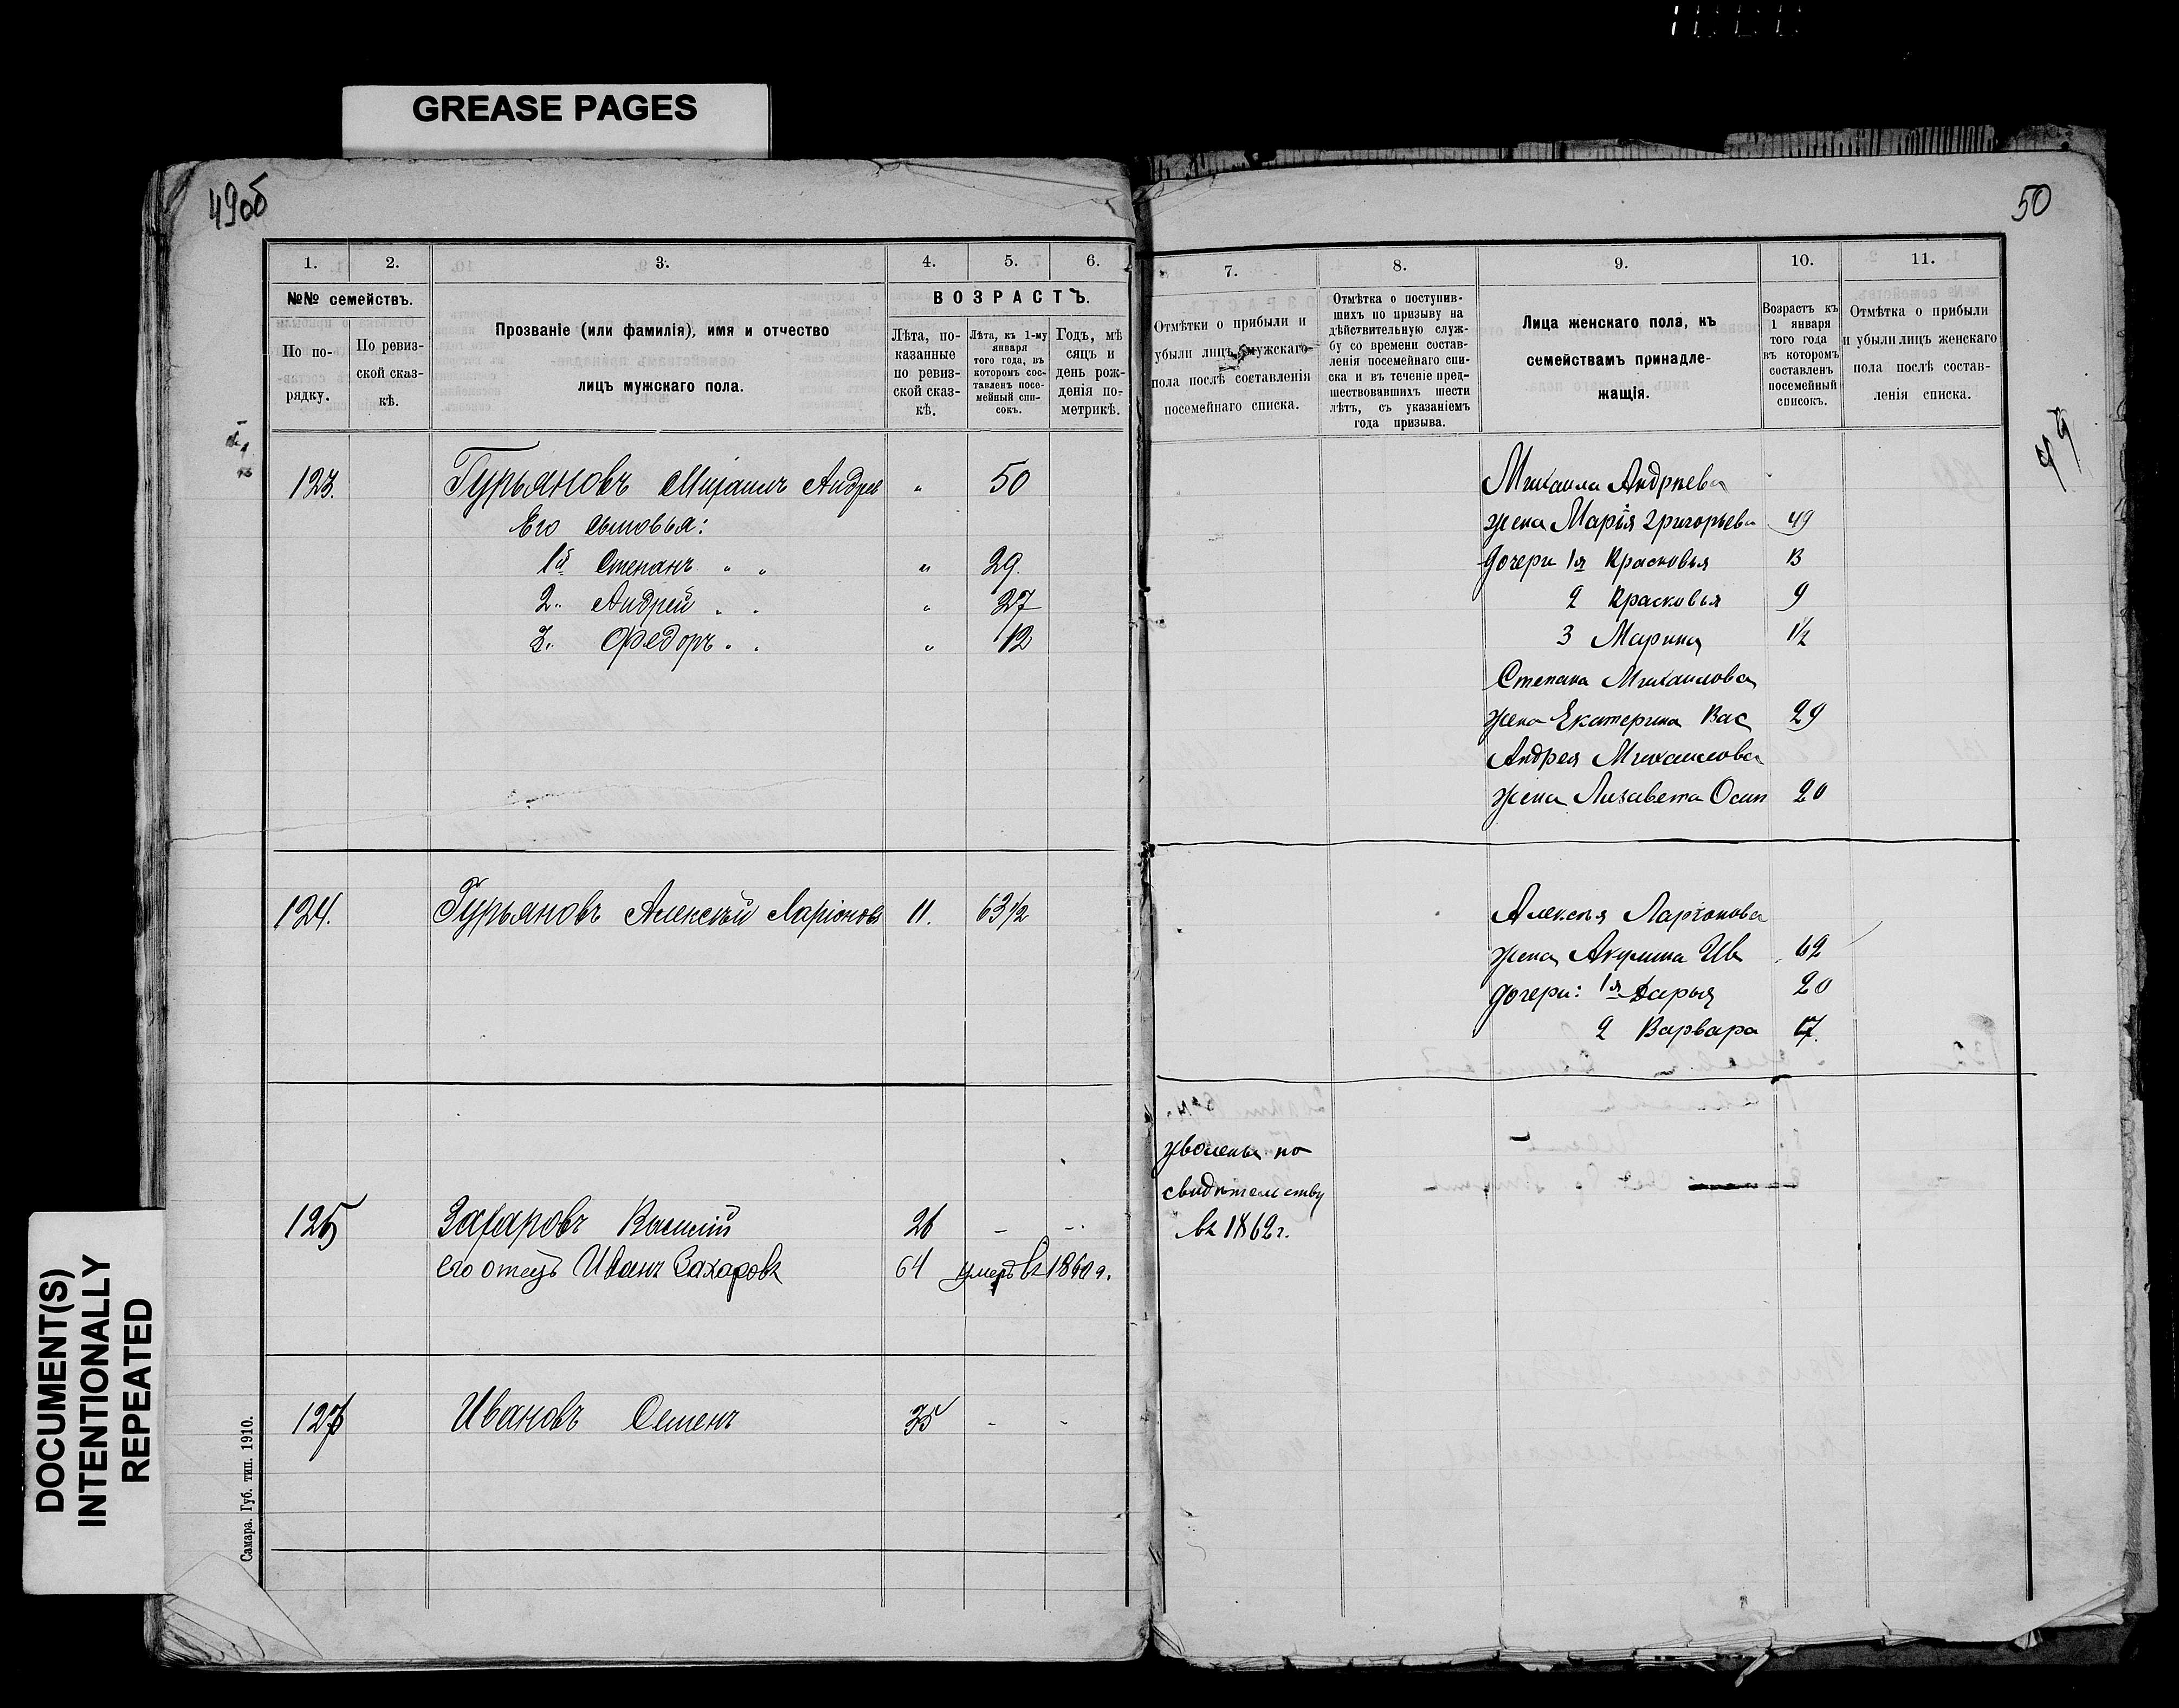 GREASE PAGES
49об
1.
2.
3.
4.
5.
6.
№№ семействъ.
По по-
рядку.
По ревиз-
ской сказ-
кѣ.
Прозваніе (или фамилія), имя и отчество
лицъ мужскаго пола.
ВОЗРАСТЪ.
Лѣта, по-
казанные
по ревиз-
ской сказ-
кѣ.
Лѣта, къ 1-му
января
того года, въ
которомъ сос-
тавленъ посе-
мейный спи-
сокъ.
Годъ, мѣ
сяцъ и
день рож-
денія по-
метрикѣ.
123. Гурьяновъ Михаилъ Андрее " 50
Его сыновья:
1й Степанъ " " " 29
2. " Андрей " " " 27
3. " Федоръ " " " 12
124. Гурьяновъ Алексѣй Ларіонов 11. 63½
125 Захаровъ Василій 26 - -
его отецъ Иванъ Захаровъ 64 умеръ въ 1860 г.
126 Ивановъ Семенъ 35 - -
Самара. Губ. тип. 1910.
DOCUMENT(S)
INTENTIONALLY
REPEATED
50
49
7.
8.
9.
10.
11.
Отмѣтки о прибыли и
убыли лицъ мужскаго
пола послѣ составленія
посемейнаго списка.
Отмѣтка о поступив-
шихъ по призыву на
дѣйствительную служ-
бу со времени состав-
ленія посемейнаго спи-
ска и въ теченіе пред-
шествовавшихъ шести
лѣтъ, съ указаніемъ
года призыва.
Лица женскаго пола, къ
семействамъ принадле-
жащія.
Возрастъ къ
1 января
того года
въ которомъ
составленъ
посемейный
списокъ.
Отмѣтка о прибыли
и убыли лицъ женскаго
пола послѣ состав-
ленія списка.
Михаила Андрѣева
жена Марія Григорьева 49
дочери 1я Прасковья 13
2 Прасковья 9
3 Марина 1½
Степана Михаилова
жена Екатерина Вас 29
Андрея Михаилова
жена Лизавета Осип 20
Алексѣя Ларіонова
жена Акулина Ив 62
дочери: 1я Дарья 20
2 Варвара 17.
уволены по
свидѣтельству
въ 1862 г.